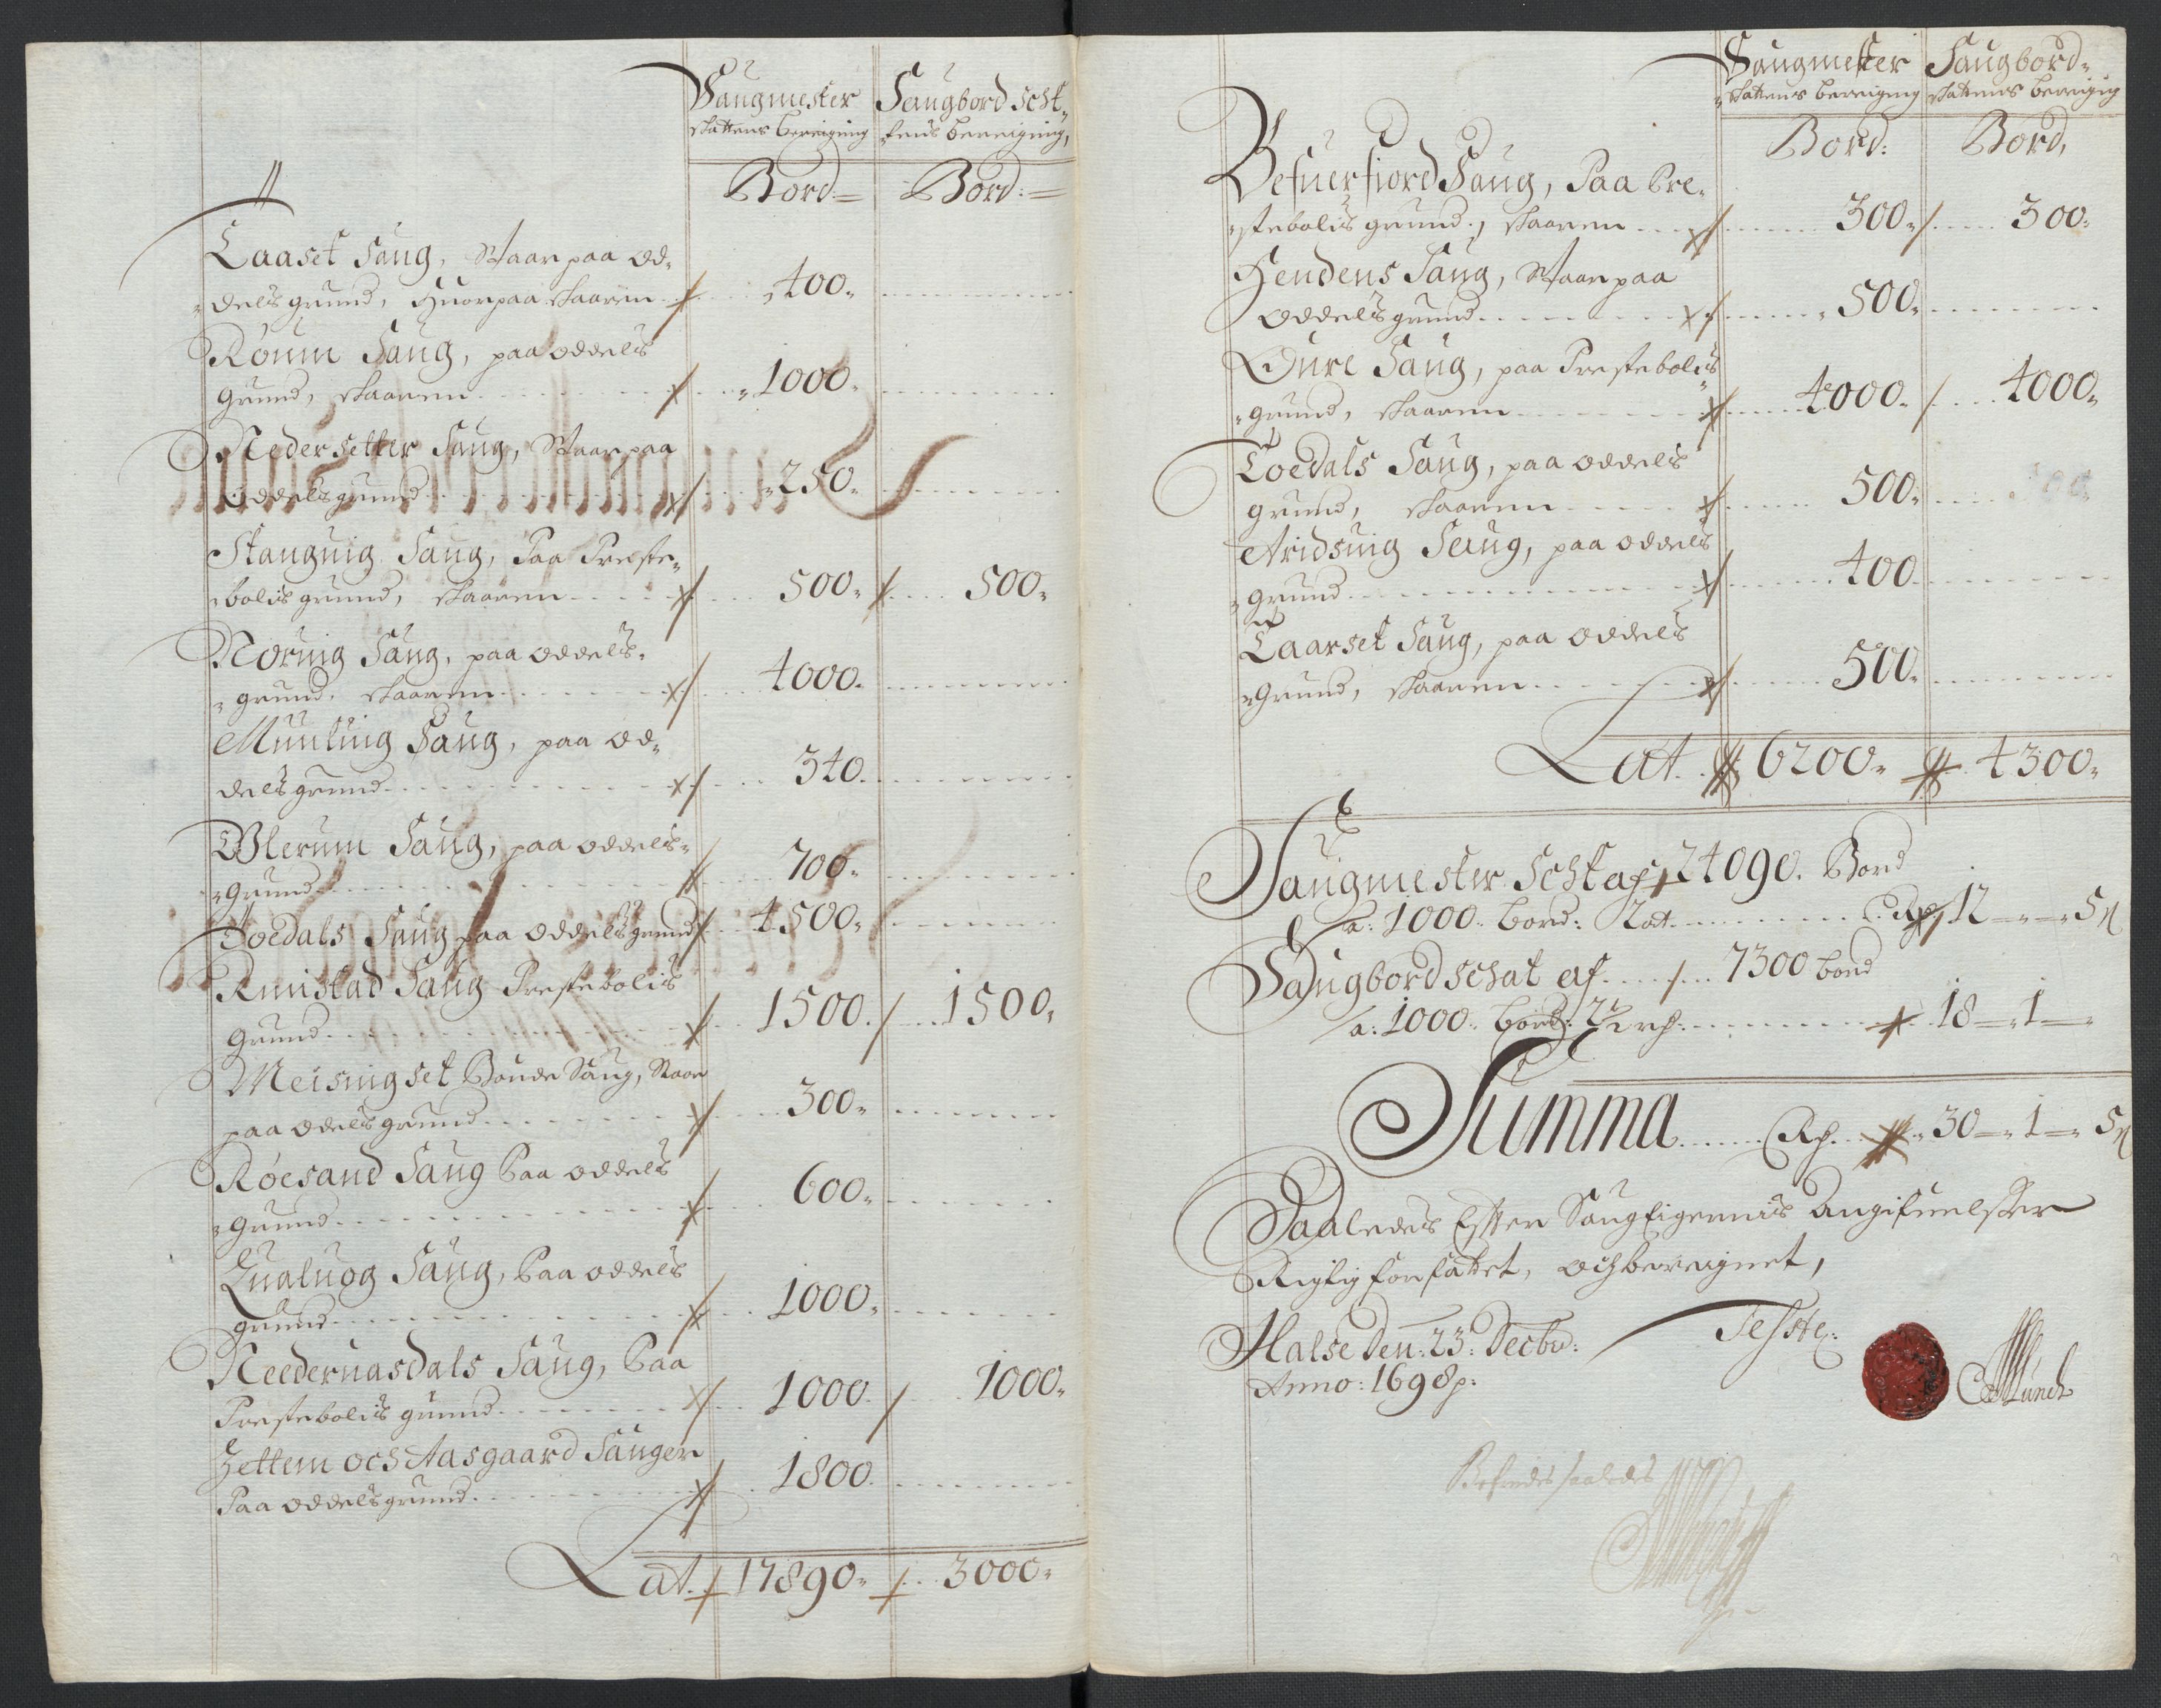 Saugmester Saugbord Schat-
skattens beregning tens beregning,
Bord= Bord:=
Laaset Saug, Staar paa od-
dels grund, huorpaa skaaren 400.
Roum Saug, paa oddels
grund, skaaren 1000.
Nedersetter Saug, Staar paa
oddels grund 250.
Stangnig Saug, Paa Preste-
bolis grund, skaaren 500. 500.
Noruig Saug, paa oddels-
grund. skaaren 4000.
Saug, paa od-
dels grund 340.
Ølerum Saug, paa oddels-
grund 700.
Toedals Saug paa oddels grund 4500.
Rimstad Saug Prestebolis
grund 1500. 1500.
Meisingset Bonde Saug, Staar
paa odels grund 300.
Röesand Saug Paa oddels
grund 600.
Qualuog Saug, Paa oddels
grund 1000.
Neederuasdals Saug, Paa
Prestebolis grund 1000. 1000.
Settem och Aasgaard Sauger
Paa oddels grund 1800.
Lat. 17890. 3000.
Saugmester Saugbord-
skattens beregning skattens beregnig
Bord: Bord,
Befuerfiord Saug, Paa Pre-
stebolis grund, skaaren 300. 300.
Hendens Saug, Staar paa
oddels grund 500.
Qure Saug, paa Prestebolis
grund, skaaren 4000. 4000.
Toedals Saug, paa oddels
grund, skaaren 500.
Aridsuig Saug, paa oddels
grund 400
Laarset Saug, paa oddels
grund, skaaren 500.
Lat. 6200. 4300.
Saugmester Schat af 24090. Bord
a: 1000. bord: 2 ort. Rdr 12 — 5
Saugbord schat af 7300 bord
a: 1000. bord: 2½ rdr: 18 — 1 —
Summa Rdr. 30 — 1 — 5
Saaledes Efter Saug Eigernis Angifuelser
Rigtig forfattet, och beregnet,
Halse den: 23: Decbr: Teste:
Anno: 1698 p: Munch
Befindes saaledes